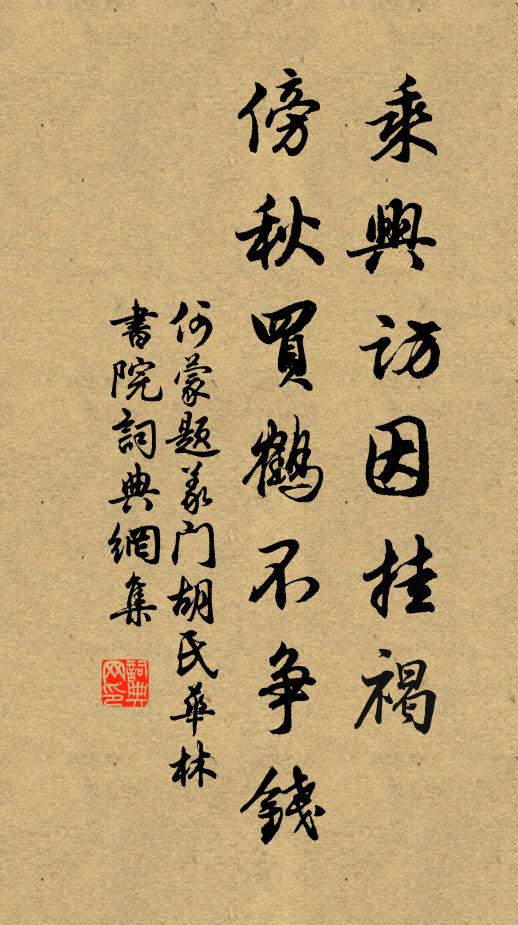 乘興訪因挂褐
傍秋買鶴不争錢
何蒙题义门胡氏華林
書院詞典網集
詞典网印